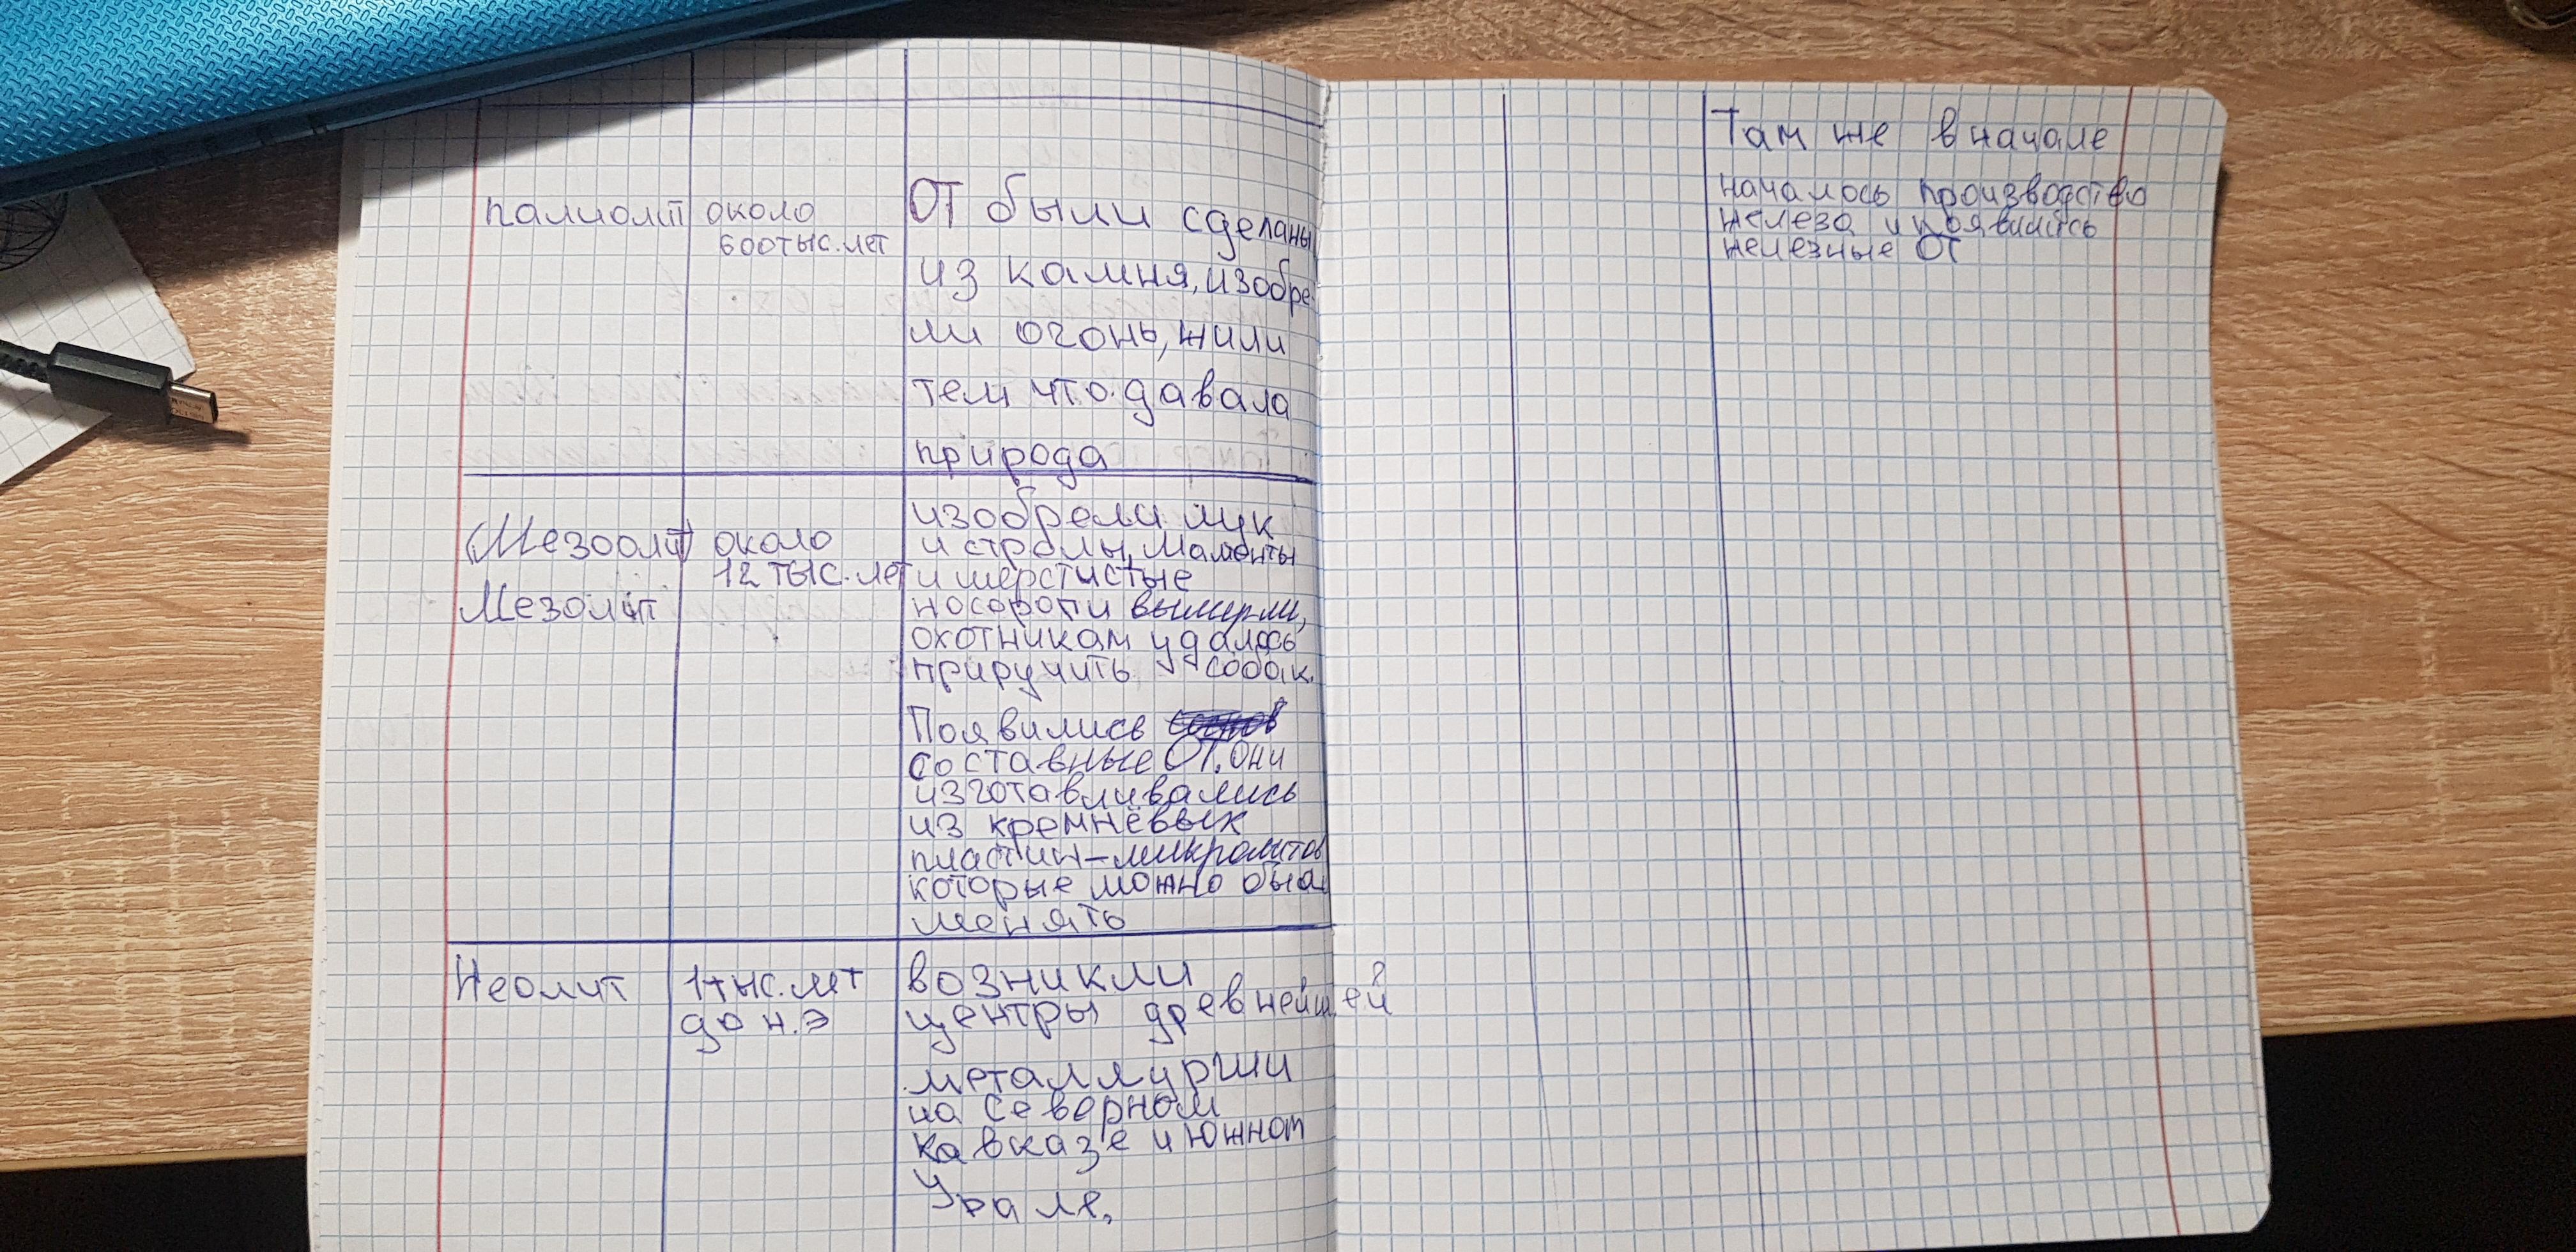 палиолит
около
600тыс.лет
ОТ были сделаны
из камня, изобре-
ли огонь, жили
тем что давала
природа
(Мезоолит)
Мезолит
около
12 тыс. лет
изобрели лук
и стрелы, Маменты
и шерстистые
носороги вымерли,
охотникам удалось
приручить собак.
Появились
составные ОТ. Они
изготавливались
из кремнёвых
пластин-микролитов
которые можно было
менять
Неолит
1тыс.лет
до н.э
возникли
центры древнейшей
металлургии
на северном
кавказе и южном
Урале,
Там же в начале
началось производство
железа и появились
железные ОТ